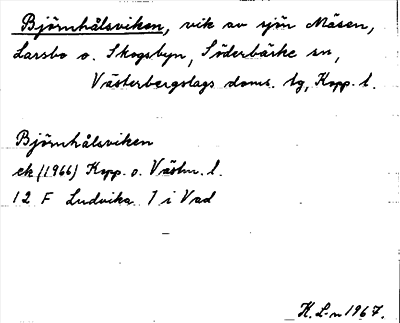 Björnhålsviken, vik av sjön Mäsen,
Larsbo o. Skogsbyn, Söderbärke sn,
Västerbergslags doms. tg, Kopp. l.
Björnhålsviken
ek (1966) Kopp. o. Västm. l.
12 F Ludvika 7 i Vad
H. L-n 1967.